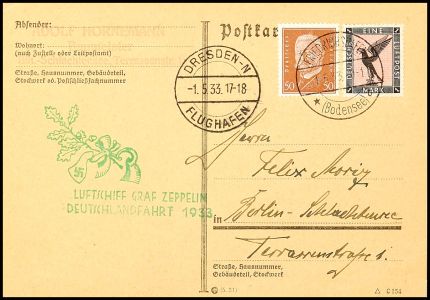 Absender:
ADOLF HORNEMANN
Wohnort:
(auch Zustell- oder Leitpostamt)
Straße, Hausnummer, Gebäudeteil,
Stockwerk od. Postschließfachnummer
Postkarte
DRESDEN-N
-1.5.33.17-18
FLUGHAFEN
50 50
EINE
LUFTPOST
MARK
(Bodensee)
LUFTSCHIFF GRAF ZEPPELIN
DEUTSCHLANDFAHRT 1933
Herrn
Felix Moriz
in Berlin-Schlachtensee
Terrassenstrasse 1.
Straße, Hausnummer,
Gebäudeteil, Stockwerk
C 154